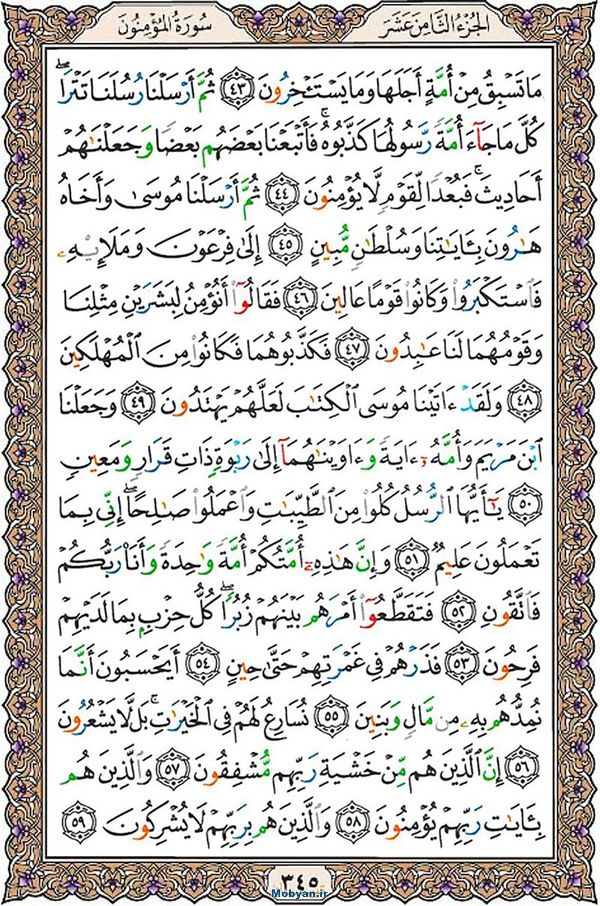 الجُزءُ الثَّامِنَ عَشَرَ
سُورَةُ المُؤْمِنُونَ
مَا تَسْبِقُ مِنْ أُمَّةٍ أَجَلَهَا وَمَا يَسْتَـْٔخِرُونَ ٤٣ ثُمَّ أَرْسَلْنَا رُسُلَنَا تَتْرَاۖ
كُلَّ مَا جَآءَ أُمَّةً رَّسُولُهَا كَذَّبُوهُۚ فَأَتْبَعْنَا بَعْضَهُم بَعْضًا وَجَعَلْنَـٰهُمْ
أَحَادِيثَۚ فَبُعْدًا لِّقَوْمٍ لَّا يُؤْمِنُونَ ٤٤ ثُمَّ أَرْسَلْنَا مُوسَىٰ وَأَخَاهُ
هَـٰرُونَ بِـَٔايَـٰتِنَا وَسُلْطَـٰنٍ مُّبِينٍ ٤٥ إِلَىٰ فِرْعَوْنَ وَمَلَإِي۟هِۦ
فَٱسْتَكْبَرُوا۟ وَكَانُوا۟ قَوْمًا عَالِينَ ٤٦ فَقَالُوٓا۟ أَنُؤْمِنُ لِبَشَرَيْنِ مِثْلِنَا
وَقَوْمُهُمَا لَنَا عَـٰبِدُونَ ٤٧ فَكَذَّبُوهُمَا فَكَانُوا۟ مِنَ ٱلْمُهْلَكِينَ
٤٨ وَلَقَدْ ءَاتَيْنَا مُوسَى ٱلْكِتَـٰبَ لَعَلَّهُمْ يَهْتَدُونَ ٤٩ وَجَعَلْنَا
ٱبْنَ مَرْيَمَ وَأُمَّهُۥٓ ءَايَةً وَءَاوَيْنَـٰهُمَآ إِلَىٰ رَبْوَةٍ ذَاتِ قَرَارٍ وَمَعِينٍ
٥٠ يَـٰٓأَيُّهَا ٱلرُّسُلُ كُلُوا۟ مِنَ ٱلطَّيِّبَـٰتِ وَٱعْمَلُوا۟ صَـٰلِحًاۖ إِنِّى بِمَا
تَعْمَلُونَ عَلِيمٌ ٥١ وَإِنَّ هَـٰذِهِۦٓ أُمَّتُكُمْ أُمَّةً وَٰحِدَةً وَأَنَا۠ رَبُّكُمْ
فَٱتَّقُونِ ٥٢ فَتَقَطَّعُوٓا۟ أَمْرَهُم بَيْنَهُمْ زُبُرًاۖ كُلُّ حِزْبٍۭ بِمَا لَدَيْهِمْ
فَرِحُونَ ٥٣ فَذَرْهُمْ فِى غَمْرَتِهِمْ حَتَّىٰ حِينٍ ٥٤ أَيَحْسَبُونَ أَنَّمَا
نُمِدُّهُم بِهِۦ مِن مَّالٍ وَبَنِينَ ٥٥ نُسَارِعُ لَهُمْ فِى ٱلْخَيْرَٰتِۚ بَل لَّا يَشْعُرُونَ
٥٦ إِنَّ ٱلَّذِينَ هُم مِّنْ خَشْيَةِ رَبِّهِم مُّشْفِقُونَ ٥٧ وَٱلَّذِينَ هُم
بِـَٔايَـٰتِ رَبِّهِمْ يُؤْمِنُونَ ٥٨ وَٱلَّذِينَ هُم بِرَبِّهِمْ لَا يُشْرِكُونَ ٥٩
٣٤٥
Mobyan.ir